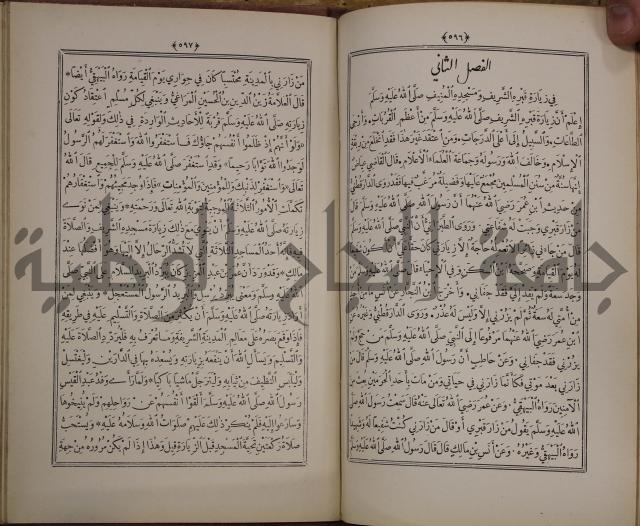 ﴿٥٩٦﴾
الفصل الثاني
في زيارة قبره الشريف ومسجده المنيف صلى الله عليه وسلم
إعلم أن زيارة قبره الشريف صلى الله عليه وسلم من أعظم القربات وأرجى
الطاعات والسبيل إلى أعلى الدرجات ومن اعتقد غير هذا فقد انخلع من ربقة
الإسلام وخالف الله ورسوله وجماعة العلماء الأعلام قال القاضي عياض
إنها سنة من سنن المسلمين مجمع عليها وفضيلة مرغب فيها فقد روى الدارقطني
من حديث ابن عمر رضي الله عنهما أن رسول الله صلى الله عليه وسلم قال
من زار قبري وجبت له شفاعتي وروى الطبراني أن النبي صلى الله عليه وسلم
قال من جاءني زائرا لا تعمله حاجة إلا زيارتي كان حقا علي أن أكون شفيعا
له يوم القيامة
وجد سعة ولم يفد إلي فقد جفاني وأخرج ابن النجار عن أنس
من أمتي له سعة ثم لم يزرني إلا وليس له عذر وروى الدارقطني وغيره عن
ابن عمر رضي الله عنهما مرفوعا إلى النبي صلى الله عليه وسلم من حج ولم
يزرني فقد جفاني وعن حاطب أن رسول الله صلى الله عليه وسلم قال من
زارني بعد موتي فكأنما زارني في حياتي ومن مات بأحد الحرمين بعث من
الآمنين رواه البيهقي وعن عمر رضي الله تعالى عنه قال سمعت رسول الله صلى
الله عليه وسلم يقول من زار قبري أو قال من زارني كنت شفيعا له وشهيدا
رواه البيهقي وغيره وعن أنس بن مالك قال قال رسول الله صلى الله عليه وسلم
﴿٥٩٧﴾
من زارني بالمدينة محتسبا كان في جواري يوم القيامة رواه البيهقي أيضا
قال العلامة زين الدين بن الحسين المراغي وينبغي لكل مسلم اعتقاد كون
زيارته صلى الله عليه وسلم قربة للأحاديث الواردة في ذلك ولقوله تعالى
«ولو أنهم إذ ظلموا أنفسهم جاؤك فاستغفروا الله واستغفر لهم الرسول
لوجدوا الله توابا رحيما» وقد استغفر صلى الله عليه وسلم للجميع قال الله
تعالى «واستغفر لذنبك وللمؤمنين والمؤمنات» فإذا وجد مجيئهم واستغفارهم
تكملت الأمور الثلاثة الموجبة لتوبة الله تعالى ورحمته وينبغي لمن نوى
زيارته صلى الله عليه وسلم أن ينوي مع ذلك زيارة مسجده الشريف والصلاة
فيه لأنه أحد المساجد الثلاثة التي لا تشد الرحال إلا إليها
مالك وقد ورد أن عمر بن عبد العزيز كان يبرد البريد للسلام على النبي صلى
الله عليه وسلم ومعنى يبرد يرسل والبريد الرسول المستعجل وينبغي لمن
أراد زيارته صلى الله عليه وسلم أن يكثر من الصلاة والتسليم عليه في طريقه
فإذا وقع بصره على معالم المدينة الشريفة وما تعرف به فليزدد الصلاة عليه
والتسليم وليسأل الله أن ينفعه بزيارته ويسعده بها في الدارين وليغتسل
وليلبس النظيف من ثيابه وليترجل ماشيا باكيا ولما رأى وفد عبد القيس
رسول الله صلى الله عليه وسلم ألقوا أنفسهم عن رواحلهم ولم ينيخوها
وسارعوا إليه فلم ينكر ذلك عليهم صلوات الله وسلامه عليه ويستحب
صلاة ركعتين تحية المسجد قبل الزيارة قيل وهذا إذا لم يكن مروره من جهة
جامعة النجاح الوطنية